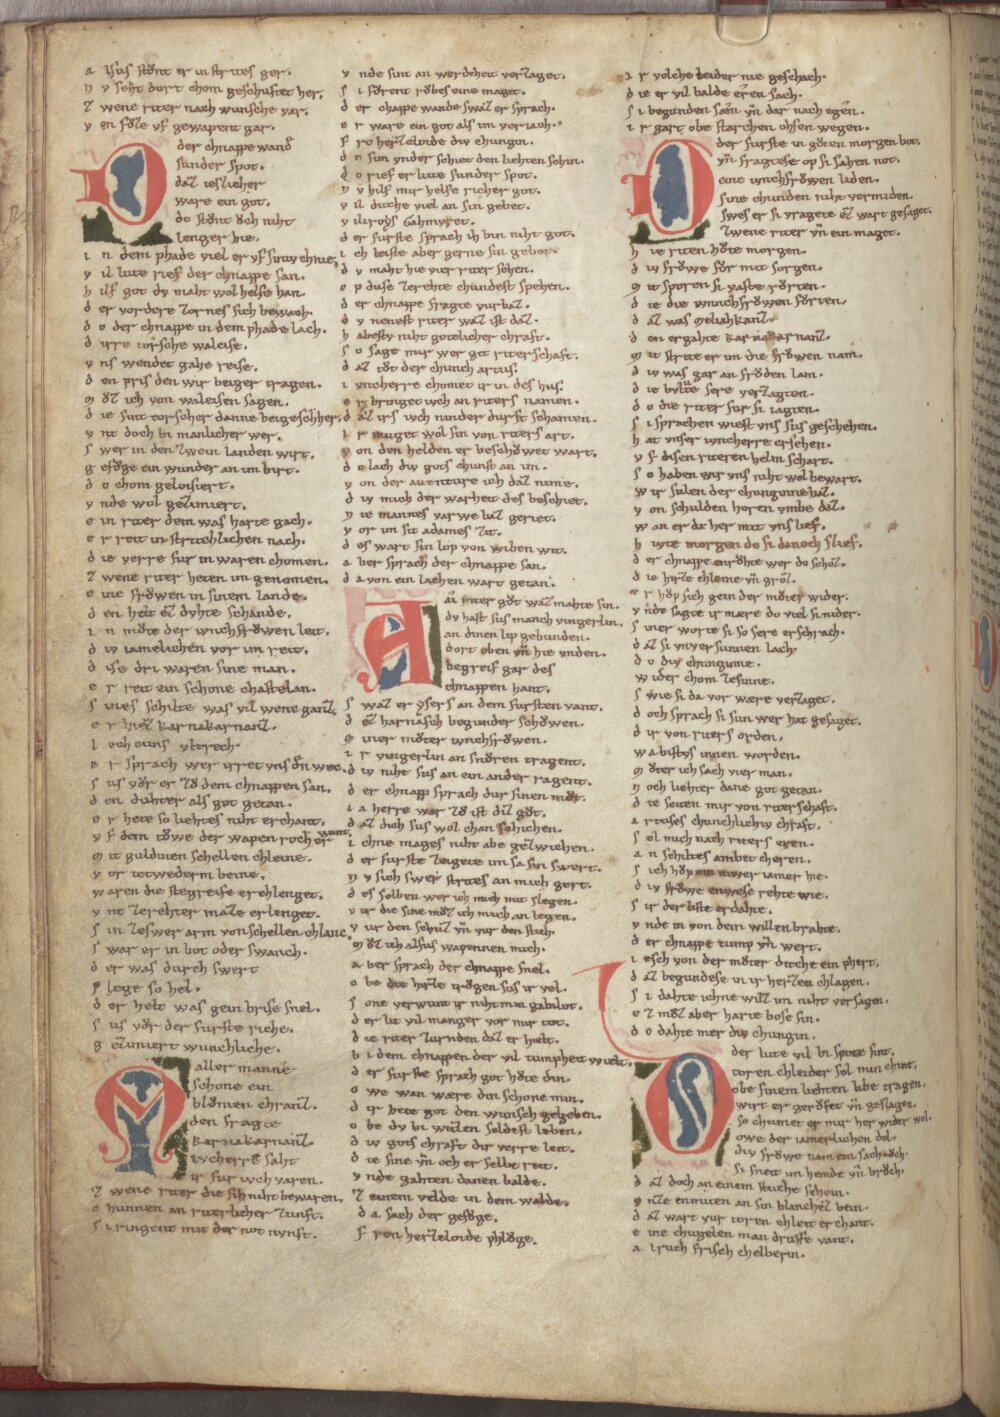 a lsus stv̊nt er in strites ger.
n v seht dort chom geschuftet her.
z wene riter nach wunsche var.
v on fv̊ze vf gewapent gar.
D der chnappe wand
sunder spot.
daz ieslicher
ware ein got.
do stv̊nt och niht
lenger hie.
i n dem phade viel er vf siniv chnie.
v il lute rief der chnappe san.
h ilf got dv maht wol helfen han.
d er vordere zornes sich bewach.
d o der chnappe in dem phade lach.
d irre torsche waleise.
v ns wendet gahe reise.
d en pris den wir beiger tragen.
m v̊z ich von waleisen sagen.
d ie sint torscher danne beigeschher.
v nt doch bi manlicher wer.
s wer in den zwein landen wirt.
g efv̊ge ein wunder an im birt.
d o chom geloisiert.
v nde wol gezimiert.
e in riter dem was harte gach.
e r reit in stritchlichen nach.
d ie verre fur in waren chomen.
z wene riter heten im genomen.
e ine frǒwen in sinem lande.
d en helt ez dvhte schande.
i n mv̊te der ivnchfrǒwen leit.
d iv iamelichen vor im reit.
d ise dri waren sine man.
e r reit ein schone chastelan.
s ines schiltes was vil wene ganz.
e r hiez karnakarnanz.
l och cuns vltrech.
e r sprach wer irret vns dn wec.
s us vv̊r er zv̊ dem chnappen san.
d en duhter als got getan.
e r hete so liehtes niht erchant.
v f dem tǒwe der wapenroch erwant.
m it guldinen schellen chleine.
v or ietwederm beine.
w aren die stegreife erchlenget.
v nt zerehter maze erlenget.
s in zeswer arm von schellen chlanc.
s war er in bot oder swanch.
d er was durch swert
s lege so hel.
d er helt was gein brise snel.
s us vv̊r der furste riche.
g ezimiert wunchliche.
M aller manne
schone ein
blv̊men chranz.
den fragte
karnakarnanz
ivcherre saht
ir fur ivch varen.
z wene riter die sich niht bewaren.
e hunnen an riterlicher zunft.
s i ringent mit der not nvnft.
v nde sint an werdcheit verzaget.
s i fv̊rent rǒbes eine maget.
d er chappe wande swaz er sprach.
e r ware ein got als im veriach.
f ro herzeloide div chungin.
d n sun vnder schiet den liehten schin.
d o rief er lute sunder spot.
n v hilf mir helfe richer got.
v il diche viel an sin gebet.
v il i roys Gahmvret.
d er furste sprach ih bin niht got.
i ch leiste aber gerne sin gebot.
d v maht hie vier riter sehen.
o p duse zerehte chundest spehen.
d er chnappe fragte vurbaz.
d v nenest riter waz ist daz.
h abestv niht gotelicher chraft.
s o sage mir wer git riterschaft.
d az tv̊t der chunch artus.
i vncherre chomet ir in des hus.
e r bringet ivch an riters namen.
d az irs ivch nimder durft schamen.
i r muget wol sin von riters art.
v on den helden er beschǒwet wart.
d o lach div gots chunst an im.
v on der auenture ich daz nime.
d iv mich der warheit des beschiet.
n ie mannes varwe baz geriet.
v or im sit adames zit.
d es wart sin lop von wiben wit.
a ber sprach der chnappe san.
d a von ein lachen wart getan.
A ai riter gv̊t waz mahte sin.
dv hast sus manch vingerlin.
an dinen lip gebunden.
dort oben vn̄ hie vnden.
begreif gar des
chnappen hant.
s waz er ysers an dem fursten vant.
d ez harnasch begunder schǒwen.
m iner mv̊ter ivnchfrǒwen.
i r vingerlin an snv̊ren tragent.
d iv niht sus an ein ander ragent.
d er chnapp sprach dur sinen mv̊t.
i a herre war zv̊ ist diz gv̊t.
d az dich sus wol chan schichen.
i chne mages niht abe gezwichen.
d er furste zeigete im sa sin swert.
n v sich swer strites an mich gert.
d es selben wer ich mich mit slegen.
v ur die sine mv̊z ich mich an legen.
v ur den schuz vn̄ vur den stich.
m v̊z ich alsus wapennen mich.
a ber sprach der chnappe snel.
o be die hirze trv̊gen sus ir vel.
s one verwunt ir niht min gabilot.
d er lit vil manger vor mir tot.
d ie riter zurnden daz er hielt.
b i dem chnappen der vil tumpheit wielt.
d er furste sprach got hv̊te din.
o we wan ware din schone min.
d ir hete got den wunsch gegeben.
o be dv bi wizen soldest leben.
d iv gots chraft dir verre leit.
d ie sine vn̄ och er selbe reit.
v nde gahten danen balde.
z einem velde in dem walde.
d a sach der gefv̊ge.
f ron herzeloide phlv̊ge.
i r volche leider nie geschach.
d ie er vil balde eren sach.
s i begunden saen vn̄ dar nach egen.
i r gart obe starchen ohsen wegen.
D der furste in gv̊ten morgen bot.
vn̄ fragtese op si sahen not.
eine ivnchfrǒwen liden.
sine chunden niht vermiden.
swes er si vragete ez wart gesaget.
zwene riter vn̄ ein maget.
h ie riten hv̊te morgen.
d iv frǒwe fv̊r mit sorgen.
m it sporen si vaste rv̊rten.
d ie die ivnchfrǒwen fv̊rten.
d az was Meliahkanz.
d en ergahte karnakarnanz.
m it strite er im die frǒwen nam.
d iv was gar an frǒden lam.
d ie bvlte sere verzagten.
d o die riter fur si iagten.
s i sprachen wiest vns sus geschehen.
h at vnser ivncherre ersehen.
v f disen riteren helm schart.
s o haben wir vns niht wol bewart.
w ir sulen der chunginne haz.
v on schulden horen vmbe daz.
w an er da her mit vns lief.
h ivte morgen do si danoch slief.
d er chnappe enrv̊hte wer do schv̊z.
d ie hirze chleine vn̄ grv̊z.
e r hv̊p sich gein der mv̊ter wider.
v n̄de sagte ir mære do viel si nider.
s iner worte si so sere erschrach.
d az si vnversunnen lach.
d o div chunginne.
w ider chom zesinne.
s wie si da vor wære verzaget.
d och sprach si sun wer hat gesaget.
d ir von riters orden.
w a bistvs innen worden.
m v̊ter ich sach vier man.
n och liehter dane got getan.
d ie seiten mir von riterschaft.
a rtuses chunchlichiv chraft.
s ol mich nach riters eren.
a n schiltes ambet cheren.
s ich hv̊p ein niwer iamer hie.
d iv frǒwe enwese rehte wie.
s ir der liste erdahte.
v nde in von dem willen brahte.
d er chnappe tump vn̄ wert.
i esch von der mv̊ter diche ein phert.
d az begundese in ir herzen chlagen.
s i dahte ichne will im niht versagen.
e z mv̊z aber harte bose sin.
d o dahte mer div chungin.
D der lute vil bi spote sint.
toren chleider sol min chint.
obe sinem liehten libe tragen.
wirt er gerǒfet vn̄ geslagen.
so chumet er mir her wider wol.
owe der iamerlichen dol.
div frǒwe nam ein sachtv̊ch.
si sneit im hemde vn̄ brv̊ch.
d az doch an einem stuche schein.
m itte enmiten an sin blanchez bein.
d az wart vur toren chleit erchant.
e ine chugelen man druffe vant.
a l ruch frisch chelberin.